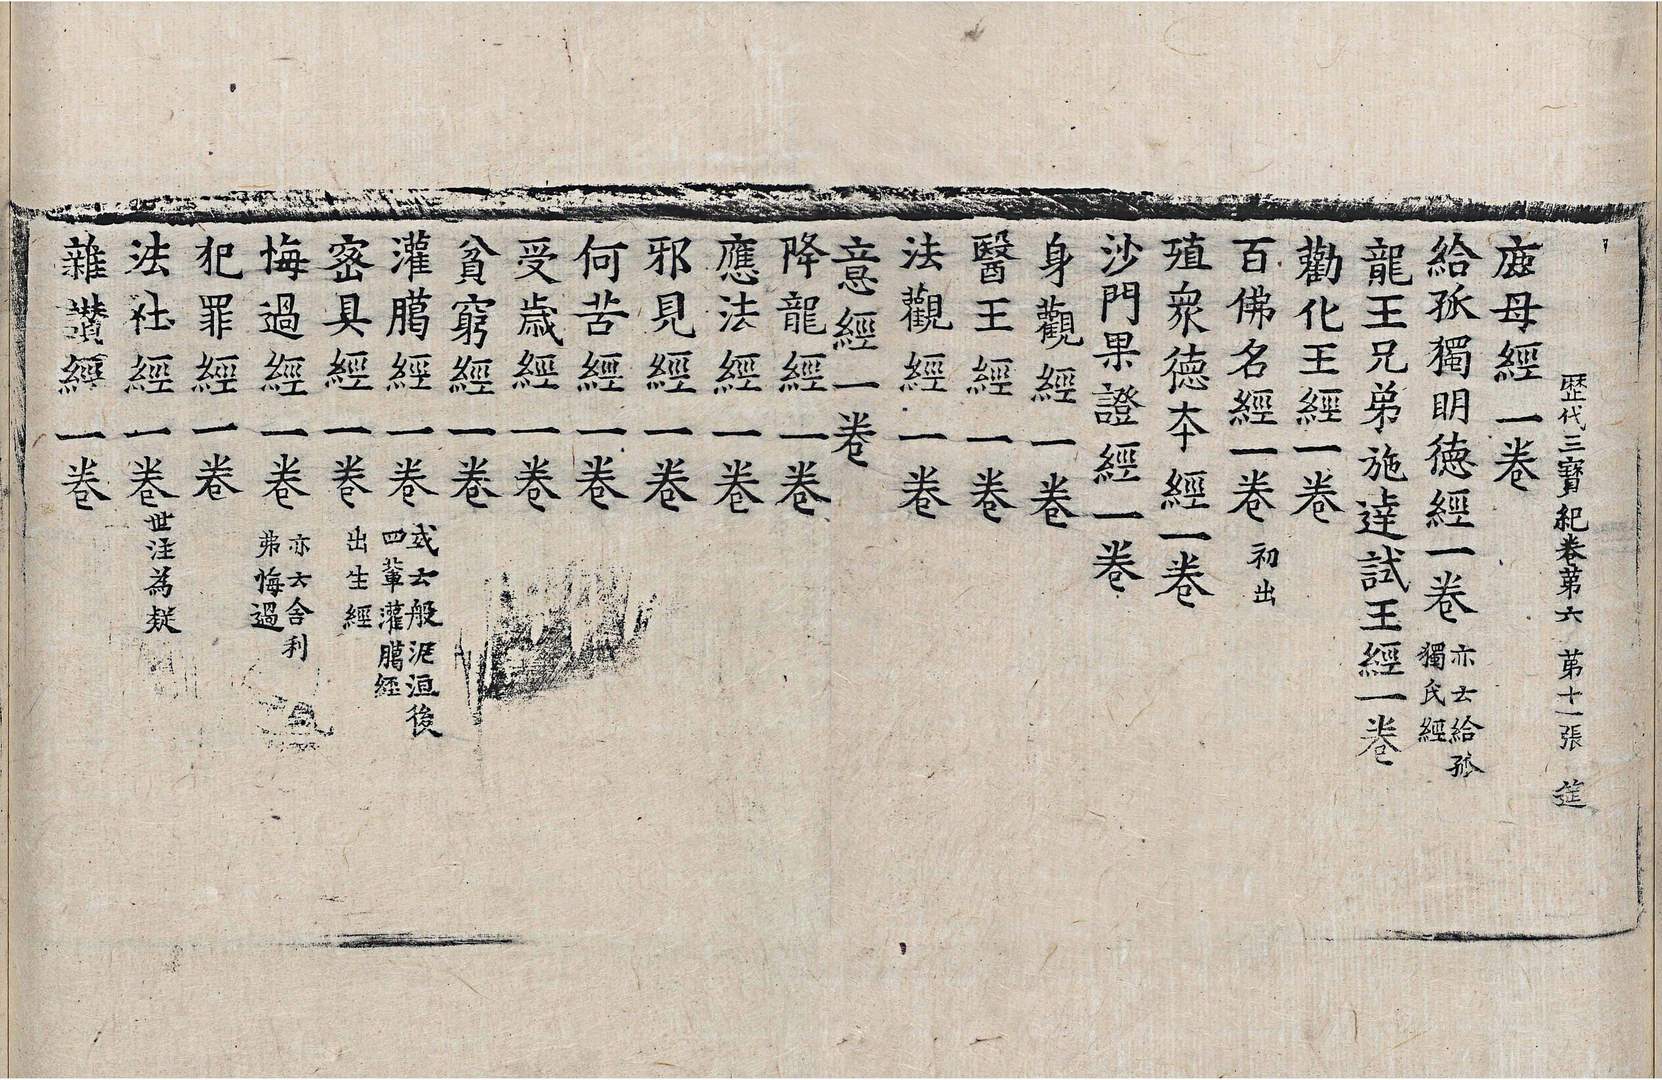 歷代三寶紀卷第六 第十一張 莚
鹿母經一卷
給孤獨明德經一卷 亦云給孤獨氏經
龍王兄弟施達試王經一卷
勸化王經一卷
百佛名經一卷 初出
殖衆德本經一卷
沙門果證經一卷
身觀經一卷
醫王經一卷
法觀經一卷
意經一卷
降龍經一卷
應法經一卷
邪見經一卷
何苦經一卷
受歲經一卷
貧窮經一卷
灌臈經一卷 或云般泥洹後四輩灌臈經
密具經一卷 出生經
悔過經一卷 亦云舍利弗悔過
犯罪經一卷
法社經一卷 世注為疑
雜讚經一卷